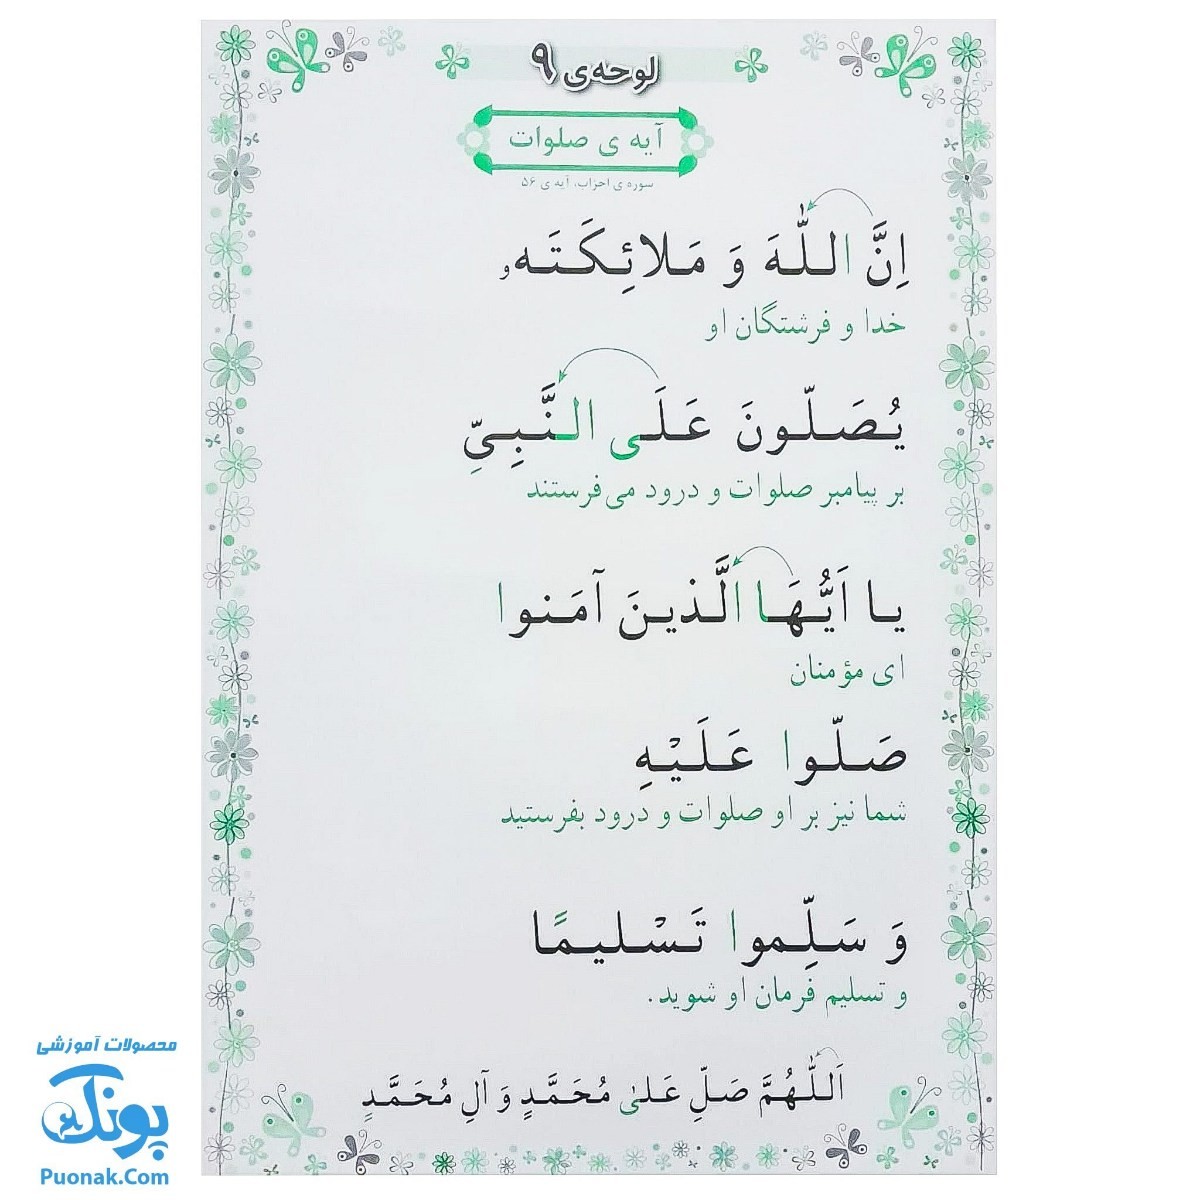 لوحه‌ی ۹
آیه ی صلوات
سوره ی احزاب، آیه ی ۵۶
اِنَّ اللّٰهَ وَ مَلائِکَتَه و
خدا و فرشتگان او
یُصَلّونَ عَلَی النَّبِیِّ
بر پیامبر صلوات و درود می‌فرستند
یا اَیُّهَا الَّذینَ آمَنوا
ای مؤمنان
صَلّوا عَلَیْهِ
شما نیز بر او صلوات و درود بفرستید
وَ سَلِّموا تَسْلیمًا
و تسلیم فرمان او شوید.
اَللّٰهُمَّ صَلِّ عَلیٰ مُحَمَّدٍ وَ آلِ مُحَمَّدٍ
محصولات آموزشی
پونک
Puonak.Com